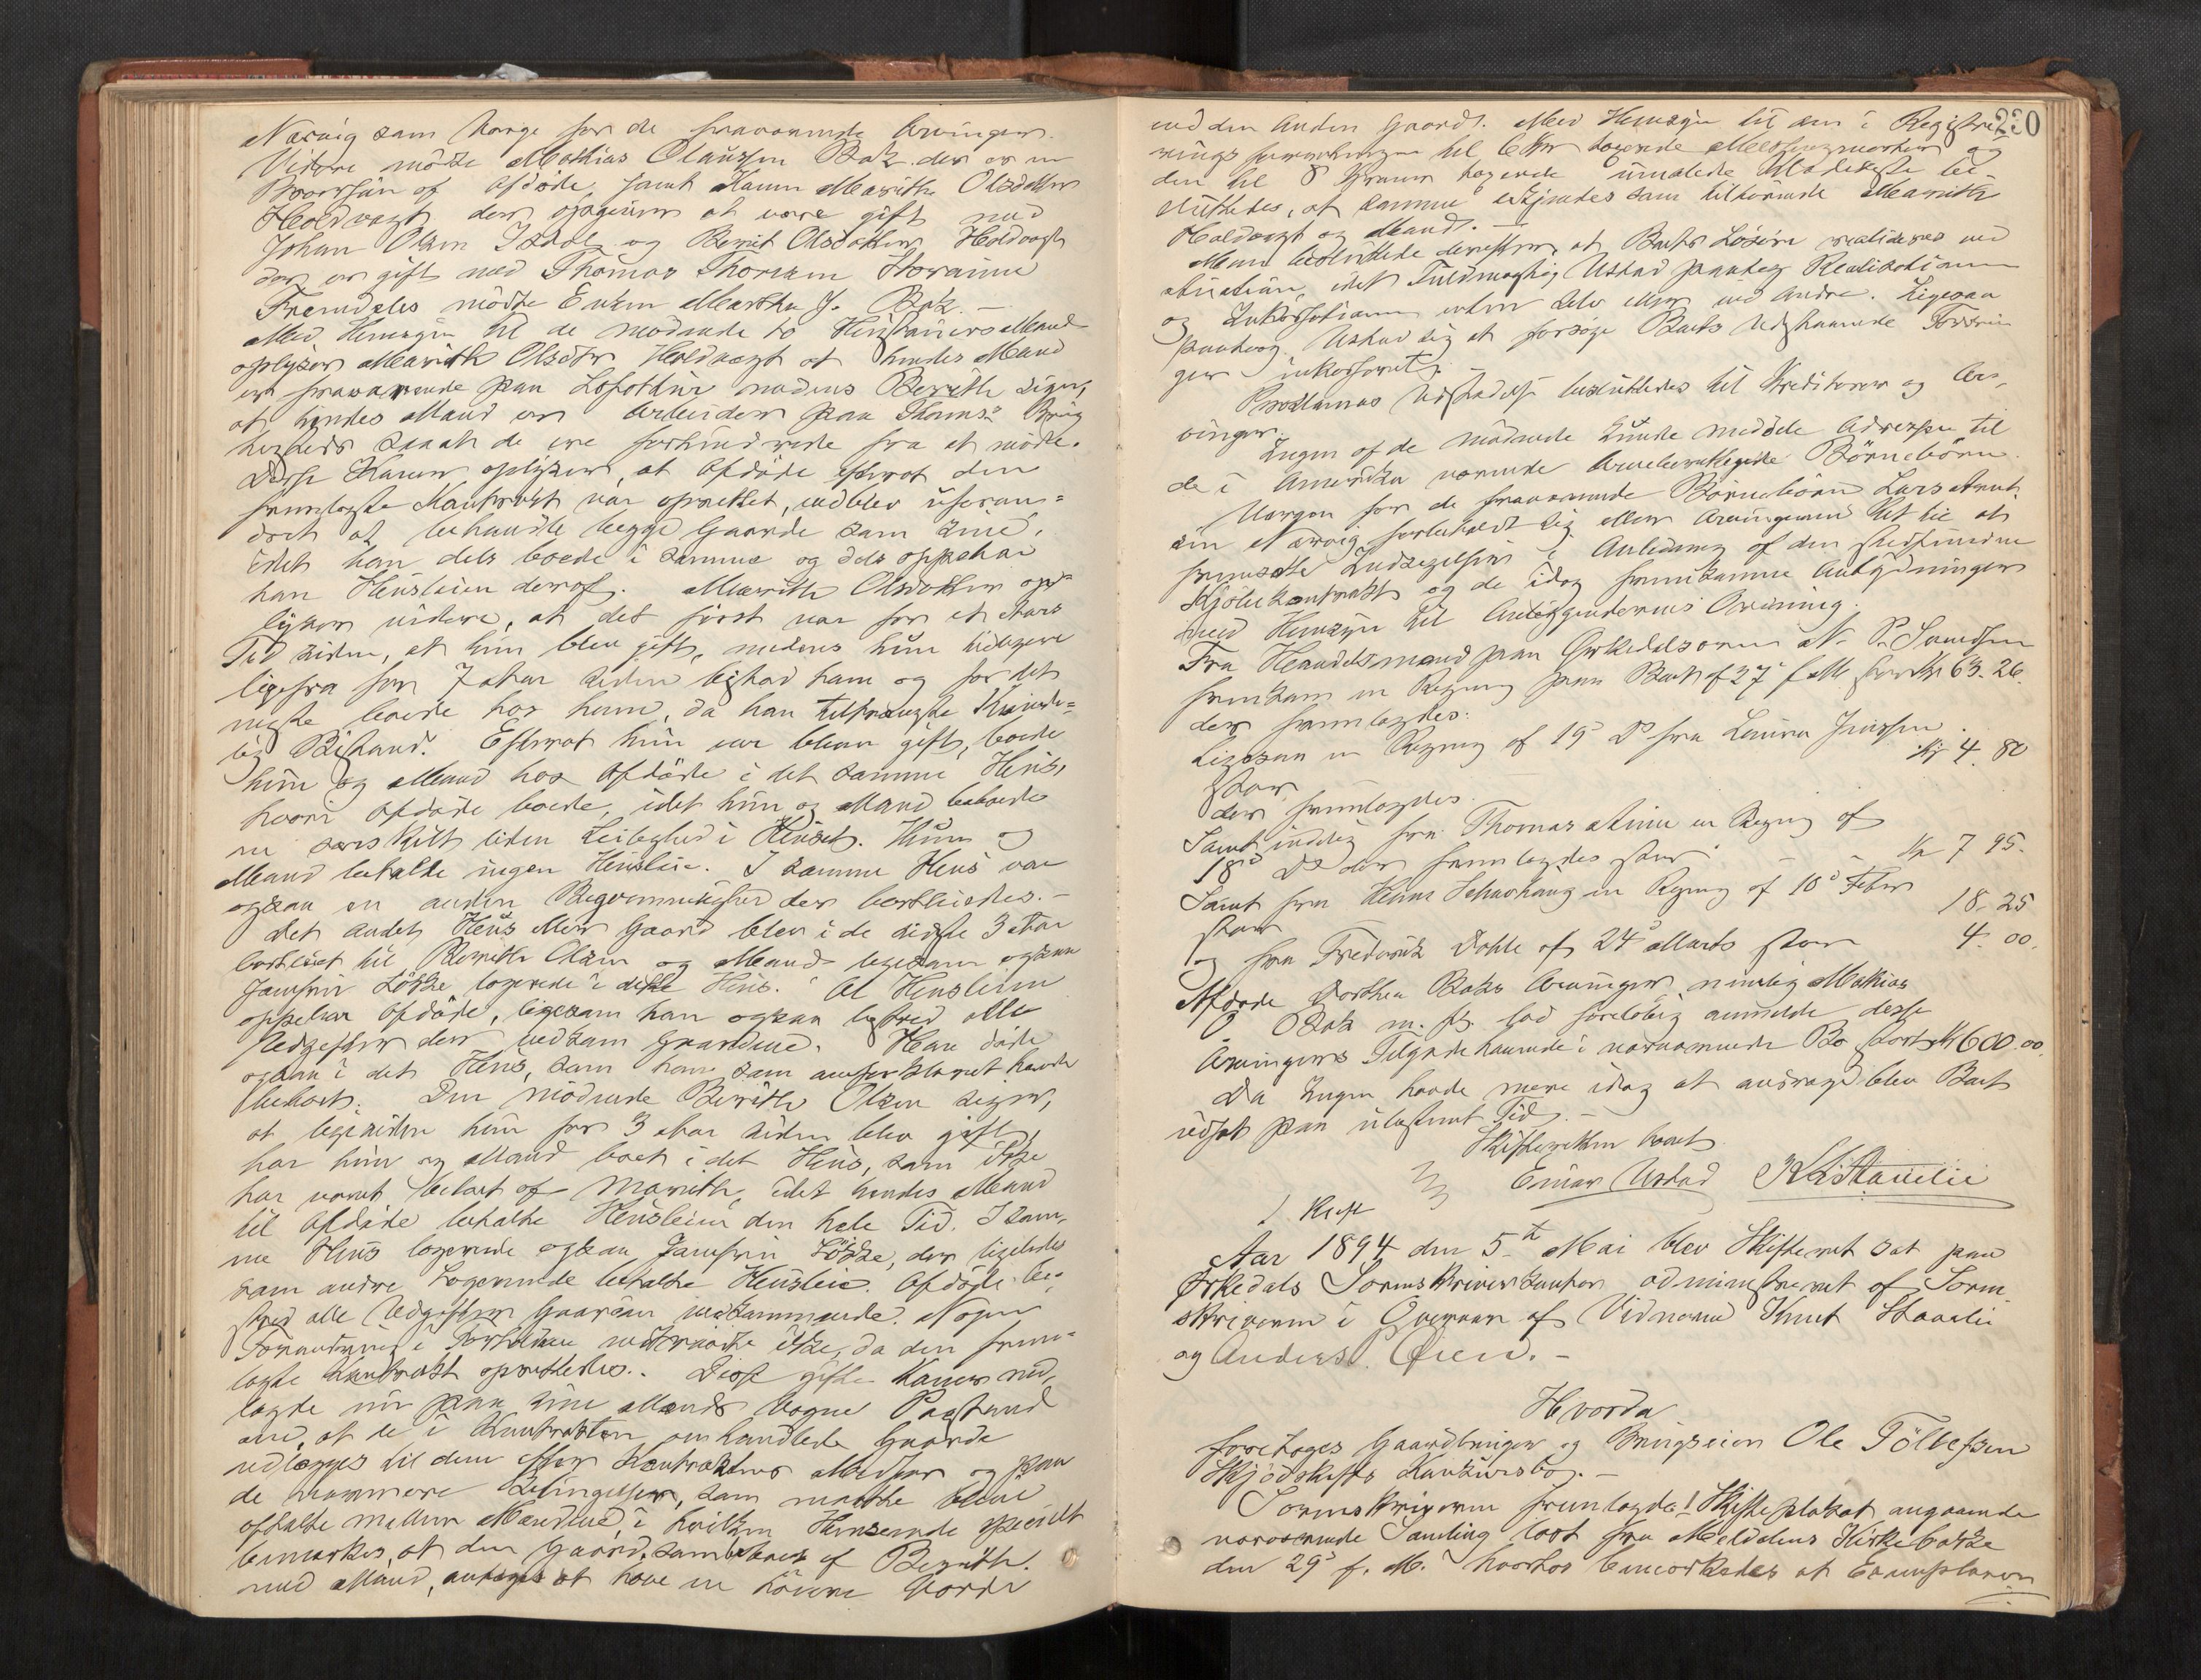 Narvig som Værge for de fraværende Arvinger.
Videre mødte Mathias Olaussen Bak der er en
Brorsøn af Afdøde, samt Konen Marith Olsdatter
Holdvagt der opgiver at være gift med
Johan Olsen og Berit Olsdatter Holdvagt
der er gift med Thomas Thorsen
Fremdeles mødte Enken Martha J. Bak. —
Med Hensyn til de mødende to Hustruers Mænd
oplyser Marith Olsdtr Holdvagt at hendes Mand
er fraværende paa Lofottur medens Berith siger,
at hendes Mand er Arbeider paa Thams Brug
saa at de ere forhindrede fra at møde.
Disse Koner oplyser, at Afdøde efterat den
fremlagte Kontrakt var oprettet, vedblev uforan=
dret at behandle begge Gaarde som sine,
idet han dels boede i samme og dels oppebar
han Husleien deraf. Marith Olsdatter op=
lyser videre, at det først var for et Aars
Tid siden, at hun blev gift, medens hun tidligere
ligefra for 7 Aar siden bistod ham og for det
meste boede hos ham, da han tiltrængte Kvinde=
lig Bistand. Efterat hun var bleven gift, boede
hun og Mand hos Afdøde i det samme Hus,
hvori Afdøde boede, idet hun og Mand beboede
en særskilt liden Leilighed i Huset. Hun og
Mand betalte ingen Husleie. I samme Hus var
ogsaa en anden Begvemmelighed der bortleiedes. —
Det andet Hus eller Gaard blev i de sidste 3 Aar
bortleiet til Berith Olsen og Mand ligesom ogsaa
Jomfru Løkke logerede i dette Hus. Al Husleien
oppebar Afdøde, ligesom han ogsaa bestred alle
Udgifter der vedkom Gaardene. Han døde
ogsaa i det Hus, som han som anført havde
beboet. Den mødende Berith Olsen siger,
at ligesiden hun for 3 Aar siden blev gift,
har hun og Mand boet i det Hus, som ikke
har været beboet af Marith, idet hendes Mand
til Afdøde betalte Husleien den hele Tid. I sam-
me Hus logerede ogsaa Jomfru Løkke, der ligeledes
som andre Logerende betalte Husleie. Afdøde be-
stred alle Udgifter Gaarden vedkommende. Nogen
Forandring i Forholdene indtraadte ikke, da den frem=
lagte Kontrakt oprettedes. Disse gifte Koner ned-
lagde nu paa sine Mænds Vegne Paastand
om, at de i Kontrakten omhandlede Gaarde
udlægges til dem efter Kontraktens Medfør og paa
de nærmere Betingelser, som maatte blive
aftalte mellem Mændene, i hvilken Henseende specielt
bemærkes, at den Gaard, som beboes af Berith
med Mand, antages at have en høiere Værdi
230
end den Anden Gaard. Med Hensyn til den i Registre-
rings forretningen til
den til 8 Kroner umalede be-
sluttedes, at samme udgjordes som tilhørende Marith
Holdvagt og Mand. —
Man besluttede derefter, at Boets Løsøre realiseres ved
Auktion, idet Fuldmægtig Ustad paatog Realisationen
og Inkassationen enten selv eller ved Andre. Ligesaa
paatog Ustad sig at forsøge Boets udestaaende Fordrin
ger inkasseret. —
Proklamas Udstedelse besluttedes til Kreditorer og Ar-
vinger.
Ingen af de mødende kunde meddele Adresse til
de i Amerika værende arveberettigede Børnebørn.
Værgen for de fraværende Børnebørn Lars Arnt
sen Narvig forbeholdt sig eller Arvingerne Ret til at
fremsætte Indsigelser i Anledning af den stedfundne
Kjøbekontrakt og de idag fremkomne Antydninger
med Hensyn til Anliggendernes Ordning.
Fra Handelsmand paa Ørkedalsøren N. P. Svendsen
fremkom en Regning paa Boet af 27de f M stor Kr 63. 26.
der fremlagdes.
Ligesaa en Regning af 19de Ds fra Laura Jenssen
stor Kr 4. 80
der fremlagdes.
Samt indlæg fra Thomas Aune en Regning af
18de Ds der fremlagdes stor — — Kr 7 95.
Samt fra Hans en Regning af 10de Febr
stor 18. 25
og fra Frederik Dahle af 24de Marts stor 4. 00.
Afdøde Dorthea Baks Arvinger, nemlig Mathias
O Bak m. fl. lod foreløbig anmelde disse
Arvingers Tilgodehavende i nærværende Bo stort Kr 600.00.
Da Ingen havde mere idag at andrage blev Boet
udsat paa ubestemt Tid. —
Skifteretten hævet
Einar Ustad KStavlie
Aar 1894 den 5te Mai blev Skifteret sat paa
Ørkedals Sorenskriverkontor administreret af Soren-
skriveren i Overvær af Vidnerne Knut Staalie
og Anders Øien. —
Hvorda
foretoges Gaardbruger og Brugseier Ole Tollefsen
Skjødskifts Konkursbo. —
Sorenskriveren fremlagde! Skifteplakat angaaende
nærværende Samling læst fra Meldalens Kirkebakke
den 29de f. M. hvorhos bemærkedes at Exemplarer